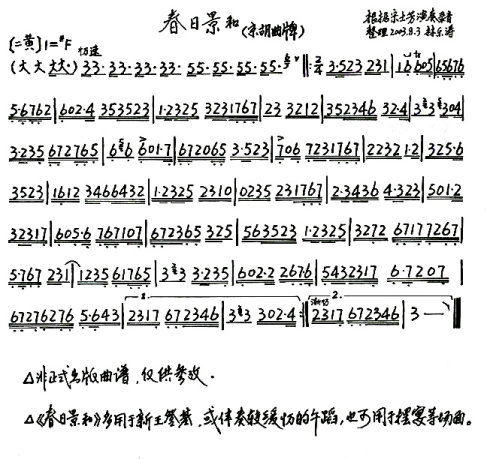 春日景和(京胡曲牌)
根据宋士芳演奏录音
整理 2003.8.3 林乐涛
[二黄] 1=#F 切速
(大大大大.) 33· 33· 33· 33· 55· 55· 55· 55· ‖: 2/4 3·523 231 | 16 605 | 65676
5·6762 | 602·4 353523 | 1·2325 3231767 | 23 3212 | 352346 32·4 | 3 3 3304
3·235 672765 | 6 6 601·7 | 672065 3·523 | 706 7231767 | 2232 1·2 | 325·6
3523 | 1612 3466432 | 1·2325 2310 | 0235 231767 | 2·3436 4·323 | 501·2
32317 | 605·6 767107 | 672365 325 | 563523 1·2325 | 3272 67177267
5·767 231 | 1235 61765 | 3 3 3 3·235 | 602·2 2676 | 5432317 6·7207 |
67276276 5·643 | 1. 2317 672346 | 3 3 3 302·4 :‖ 渐慢 2. 2317 672346 | 3 — ‖
△非正式出版曲谱,仅供参考.
△《春日景和》多用于新王登基,或伴奏较缓慢的午蹈,也可用于摆宴等场面。